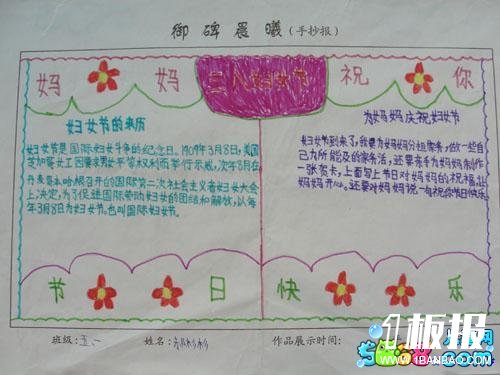 御碑晨曦(手抄报)
妈 妈 三八妇女节 祝 你
妇女节的来历
妇女节是国际妇女斗争的纪念日。1909年3月8日,美国
芝加哥女工因要求男女平等权利而举行示威,次年8月在
丹麦哥本哈根召开的国际第二次社会主义者妇女大会
上决定,为了促进国际劳动妇女的团结和解放,以每
年3月8日为妇女节,也叫国际妇女节。
为妈妈庆祝妇女节
妇女节到来了,我要为妈妈分担家务,做一些自
己力所能及的家务活,还要亲手为妈妈制作
一张贺卡,上面写上节日对妈妈的祝福,让
妈妈开心。还要对妈妈说一句祝你节日快乐。
节 日 快 乐
班级:五.一 姓名: 作品展示时间:
板报网
WWW.1BANBAO.COM